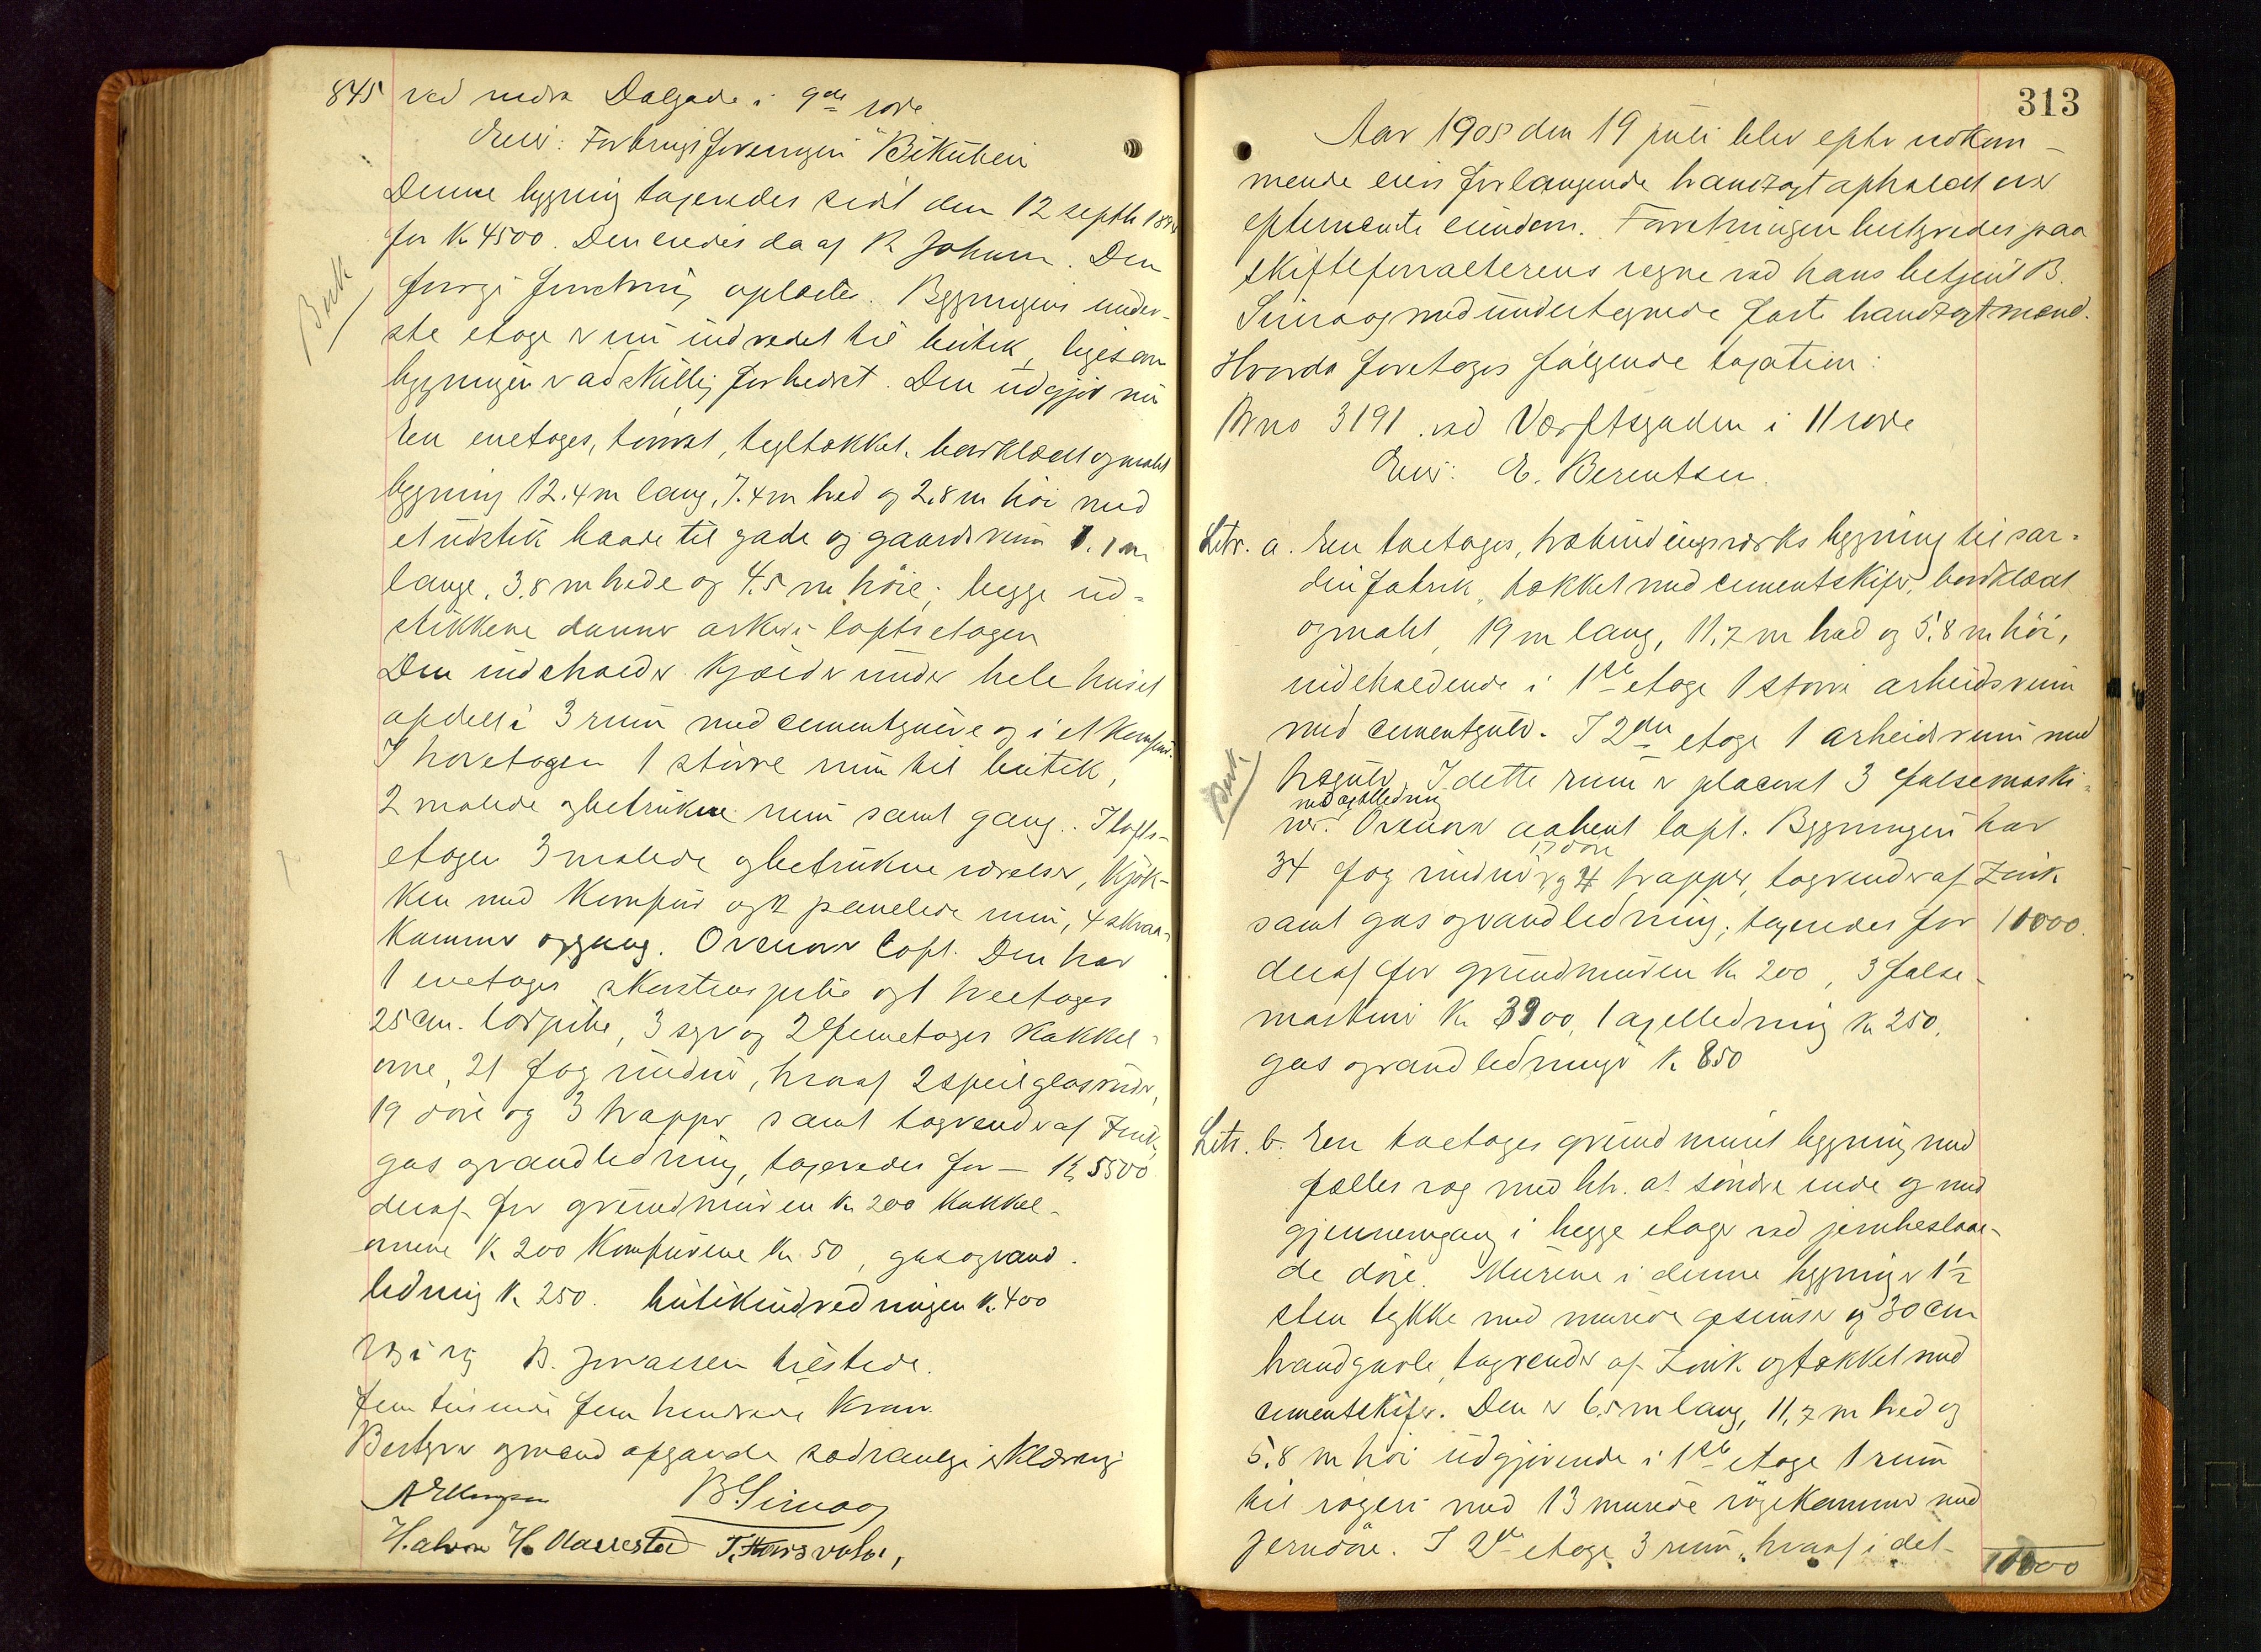 845 ved nedre Dalgade i 9de rode
Eier: Forbrugsforeningen "Bikuben
Denne bygning taxeredes sidst den 12 septb 189
for Kr 4500. Den eiedes da af R Johnsen. Den
forrige forretning oplæstes. Bygningens under-
ste etage er nu indredet til butik, ligesom
bygningen er adskillig forbedret. Den udgjør nu
Een enetages, tømret, tegltækket, bordklædt og malet
bygning 12.4 m lang, 7.4 m bred og 2.8 m høi med
et udstik baade til gade og gaardsrum 1.1 m
lange, 3.8 m brede og 4.5 m høie; begge ud-
stikkene danner arker i loftsetagen
Den indeholder kjælder under hele huset
afdelt i 3 rum med cementgulve og i et komfur.
I hovetagen 1 større rum til butik,
2 malede og betrukne rum samt gang. I lofts-
etagen 3 malede og betrukne værelser, kjøk-
ken med komfur og 2 panelede rum, 4 skraa-
kammer og gang. Ovenover loft. Den har
1 enetages skorstenspibe og 1 treetages
25 cm. lodpibe, 3 syv og 2 femetages kakkel-
ovne, 21 fag vinduer, hvoraf 2 speilglasvinduer,
19 døre og 3 trapper samt tagrender af zink,
gas og vandledning, taxeredes for — Kr 5500
deraf for grundmuren Kr 200 kakkel-
ovnene Kr 200 Komfurene Kr 50, gas og vand-
ledning Kr 250. butikindredningen Kr 400
B. Jonassen tilstede.
fem tusinde fem hundrede Kroner.
Bestyrer og mænd afgave sædvanlig erklæring
B Simog
H. Aarrestad T. Hausvold,
Berk
313
Aar 1905 den 19 juli blev efter vedkom-
mende eiers forlangende brandtaxt afholdt over
efternævnte eiendom. Forretningen bestyredes paa
skifteforvalterens vegne ved hans betjent B.
Simog med undertegnede faste brandtaxtmænd.
Hvorda foretoges følgende taxation:
Brno 3191 ved Værftsgaden i 11 rode
Eier: E. Berentsen.
Litr. a. Een toetages, træbindingsværks bygning til sar-
dinfabrik, tækket med cementskifer, bordklædt
og malet, 19 m lang, 11,7 m bred og 5,8 m høi,
indeholdende i 1ste etage 1 større arbeidsrum
med cementgulv. I 2den etage 1 arbeidsrum med
trægulv. I dette rum er placeret 3 falsemaski-
med axelledning
ner. Ovenover aabent loft. Bygningen har
17 døre
34 fag vinduer, og 4 trapper, tagrender af Zink
samt gas og vandledning, taxeredes for 10000.
deraf for grundmuren Kr 200, 3 false-
maskiner Kr 3900, 1 axelledning Kr 250,
gas og vandledninger Kr 850
Berk.
Litr. b. Een toetages grundmuret bygning med
fælles væg med litr. a. søndre ende og med
gjennemgang i begge etager ved jernbeslaae-
de døre. Murene i denne bygning er 1½
sten tykke med murede gesimser og 30 cm
brandgavle, tagrender af Zink og tækket med
cementskifer. Den er 6,5 m lang, 11,7 m bred og
5,8 m høi udgjørende i 1ste etage 1 rum
til røgeri med 13 murede røgekammer med
jerndøre. I 2den etage 3 rum, hvoraf i det
10000